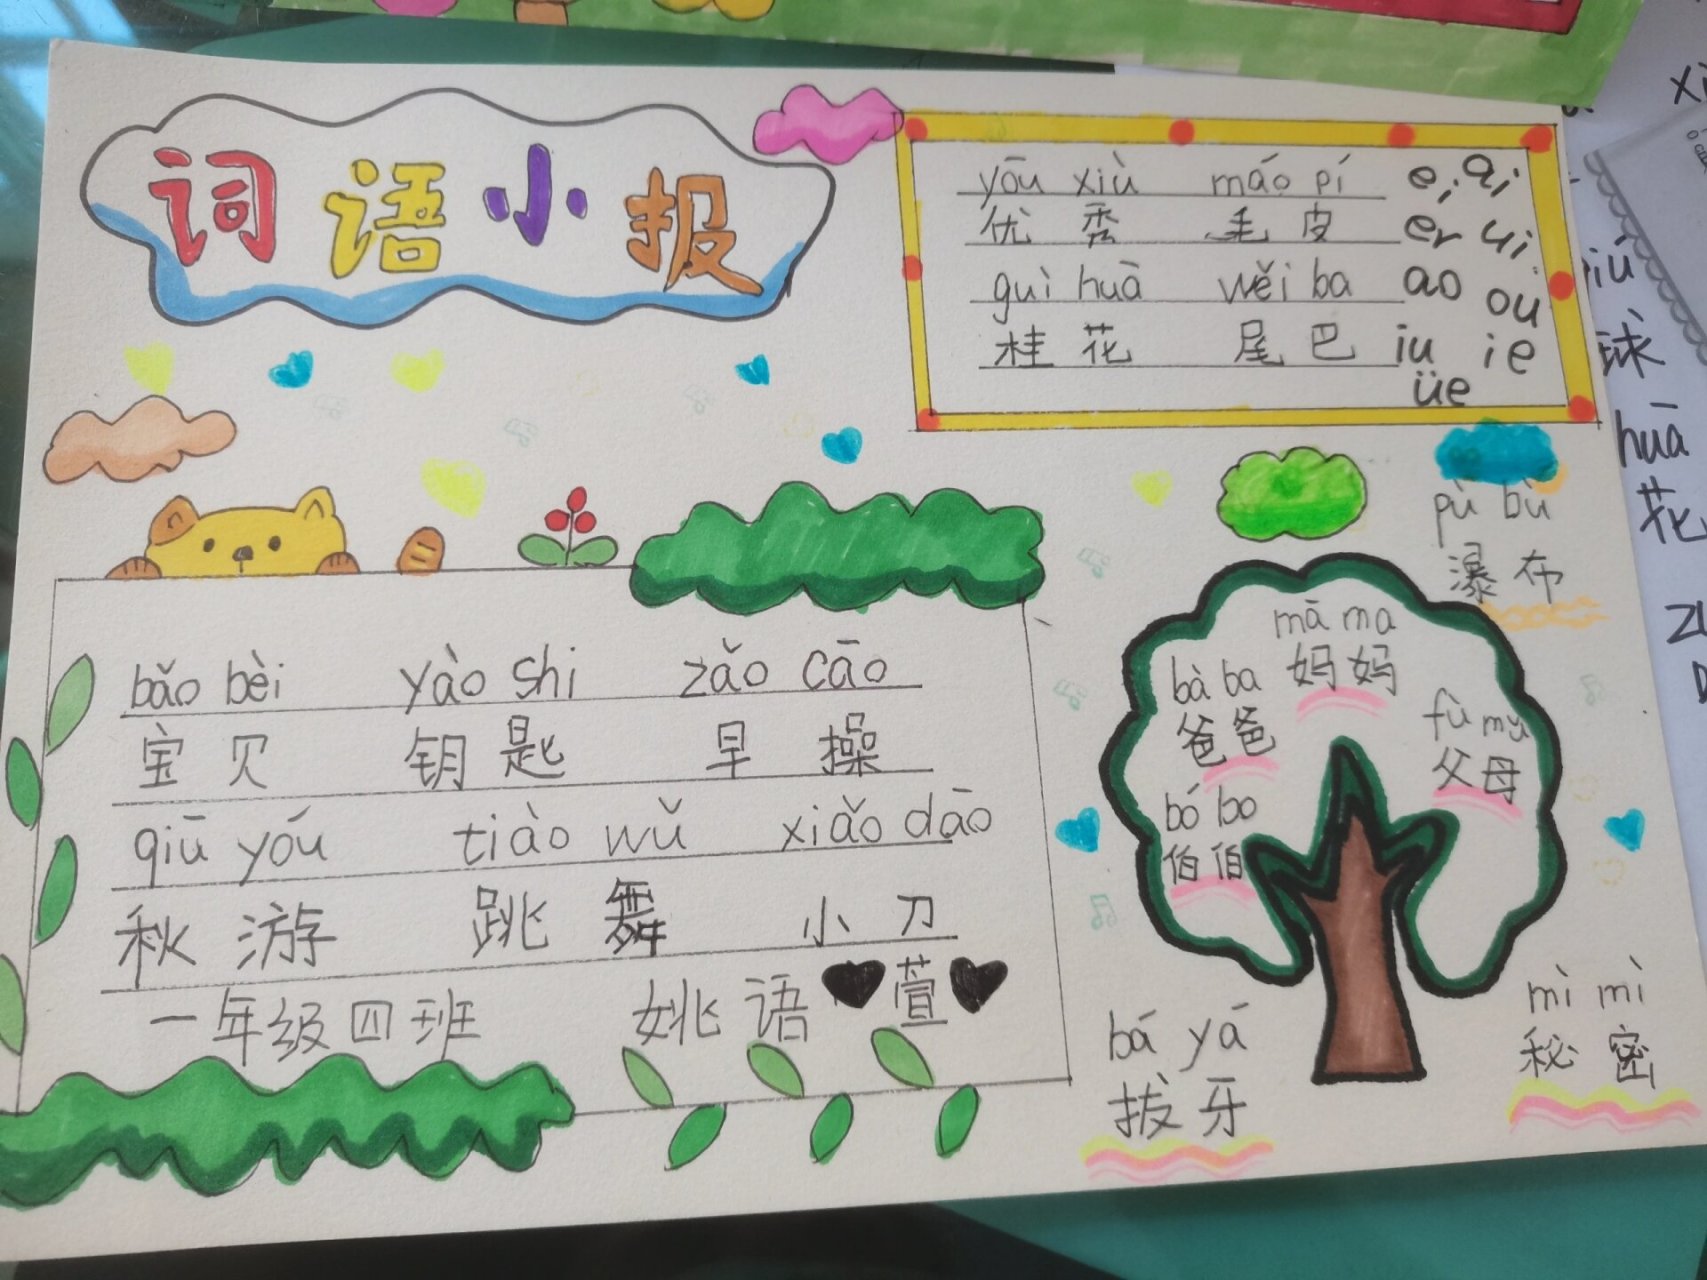 词语小报
yōu xiù máo pí ei ai
优秀 毛皮 er ui
guì huà wěi ba ao ou
桂花 尾巴 iu ie
üe
bǎo bèi yào shi zǎo cāo
宝贝 钥匙 早操
qiū yóu tiào wǔ xiǎo dāo
秋游 跳舞 小刀
一年级四班 姚语萱
pù bù
瀑布
mā ma
妈妈
bà ba
爸爸
fù mǔ
父母
bó bo
伯伯
bá yá
拔牙
mì mì
秘密
球
huā
花